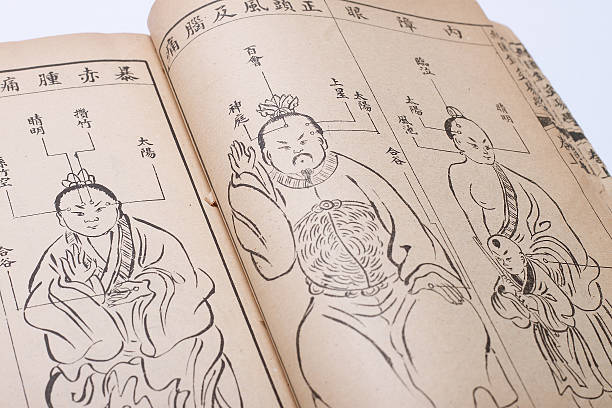 內障眼
臨泣
太陽
風池
合谷
正頭風及腦痛
百會
上星
太陽
神庭
暴赤腫痛
太陽
攢竹
睛明
絲竹空
合谷